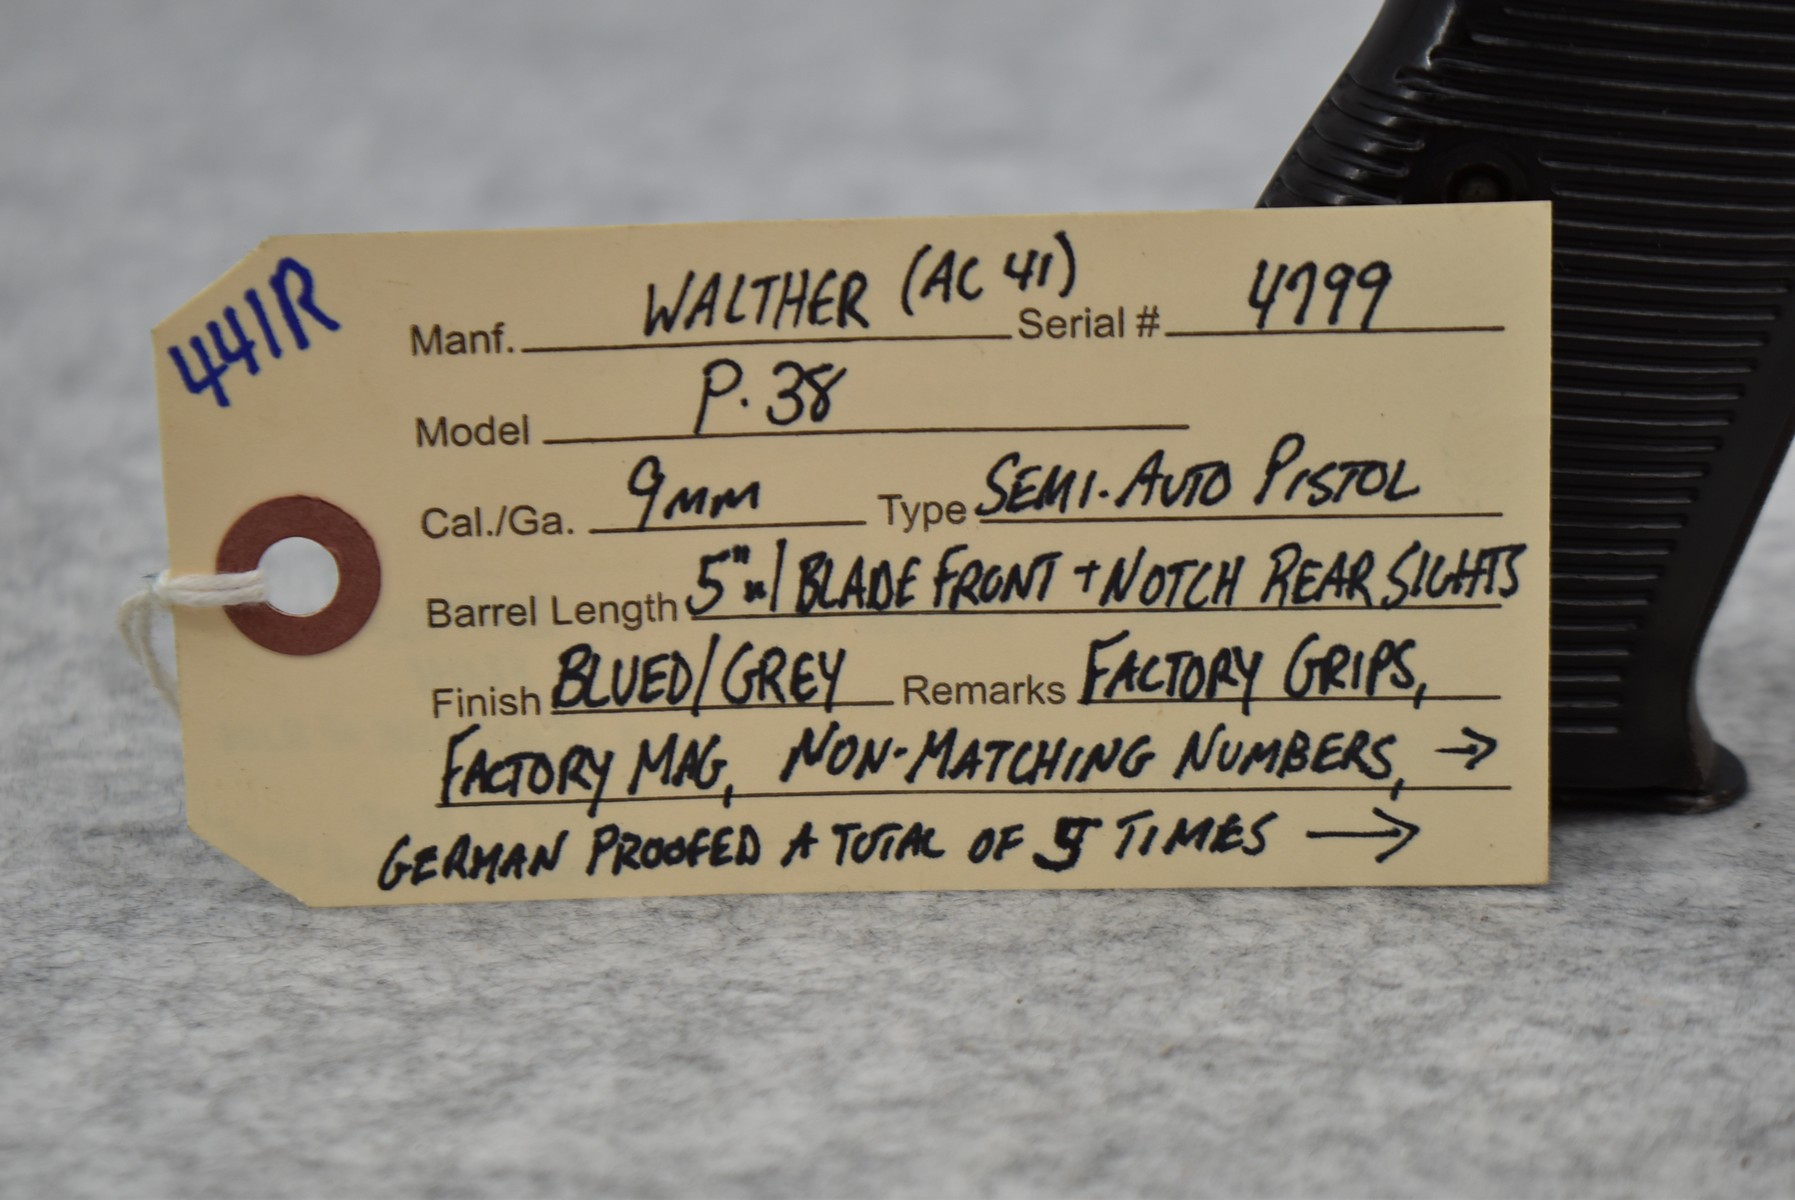 441R
Manf. WALTHER (AC 41) Serial # 4799
Model P.38
Cal./Ga. 9mm Type SEMI-AUTO PISTOL
Barrel Length 5" w/ BLADE FRONT + NOTCH REAR SIGHTS
Finish BLUED/GREY Remarks FACTORY GRIPS,
FACTORY MAG, NON-MATCHING NUMBERS, →
GERMAN PROOFED A TOTAL OF 5 TIMES →